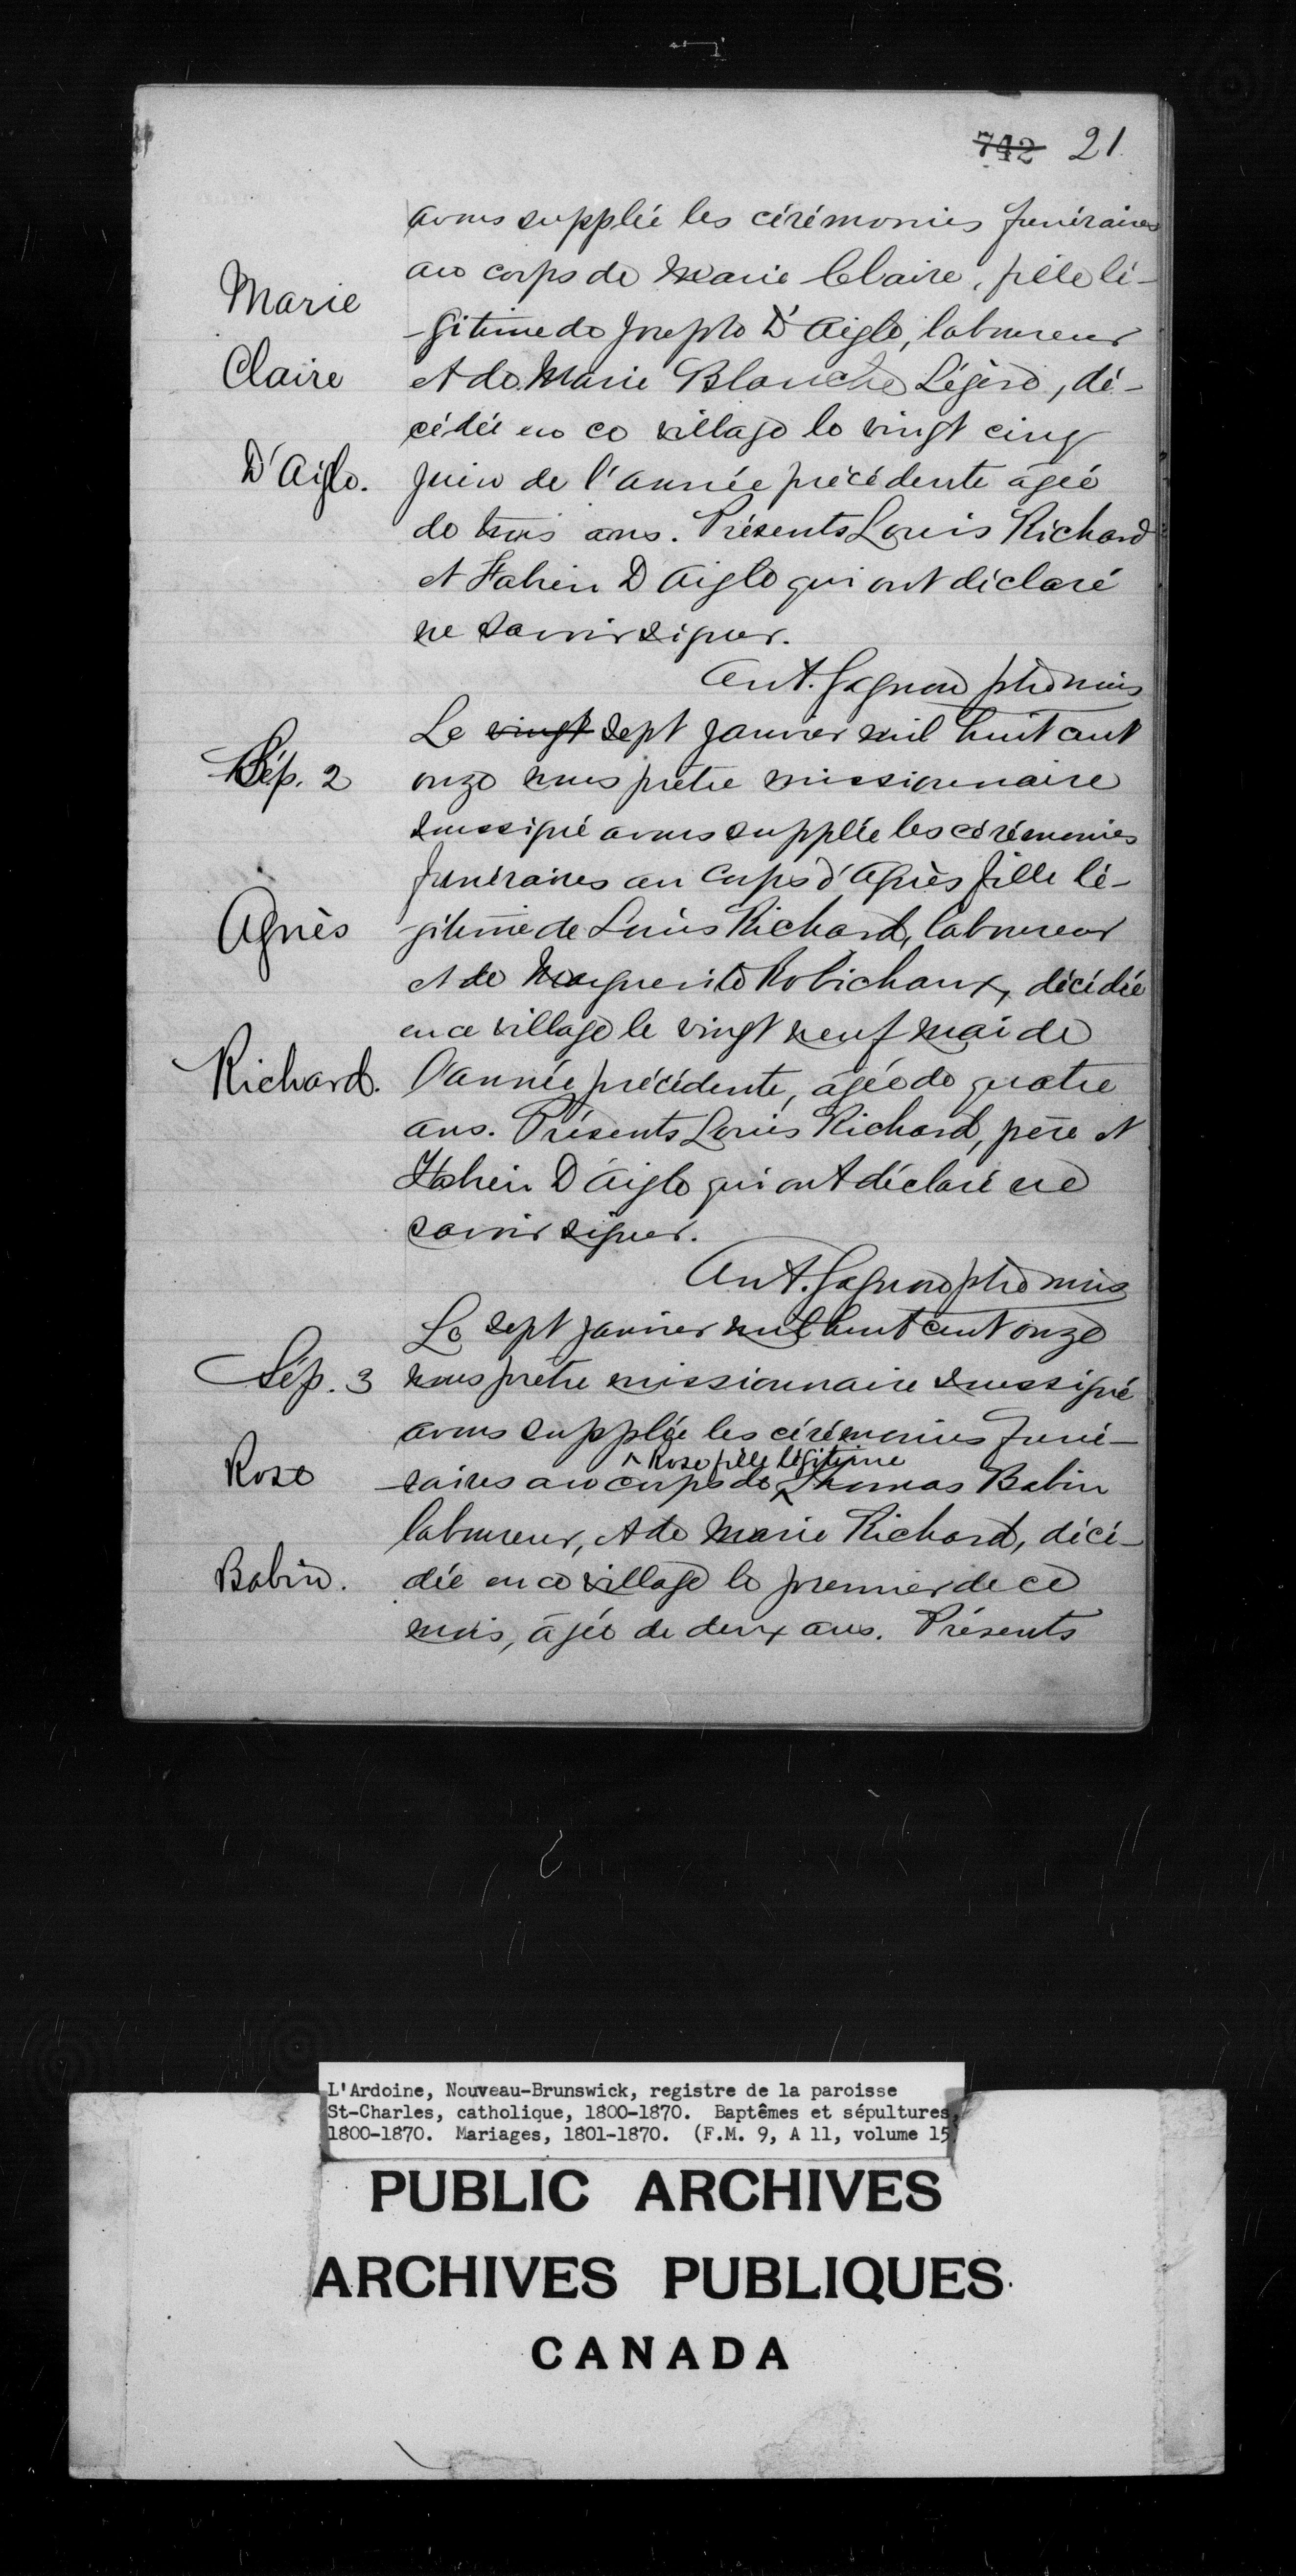 742 21.
avons supplée les cérémonies funéraires
au corps de Marie Claire, fille lé-
Marie
-gitime de Joseph D'Aigle, laboureur
Claire
et de Marie Blanche Légère, dé-
cédée en ce village le vingt cinq
D'Aigle.
juin de l'année précédente âgée
de trois ans. Présents Louis Richard
et Fabien D'Aigle qui ont déclaré
ne savoir signer.
Ant. Gagnon ptre miss
Le vingt sept janvier mil huit cent
Sép. 2
onze nous prêtre missionnaire
soussigné avons supplée les cérémonies
funéraires au corps d'Agnès fille lé-
Agnès
gitime de Louis Richard, laboureur
et de Marguerite Robichaux, décédée
en ce village le vingt neuf mai de
Richard.
l'année précédente, âgée de quatre
ans. Présents Louis Richard, père et
Fabien D'Aigle qui ont déclaré ne
savoir signer.
Ant. Gagnon ptre miss
Le sept janvier mil huit cent onze
Sép. 3
nous prêtre missionnaire soussigné
avons supplée les cérémonies funé-
Rose fille légitime
Rose
-raires au corps de Thomas Babin
laboureur, et de Marie Richard, décé-
Babin.
dée en ce village le premier de ce
mois, âgée de deux ans. Présents
L'Ardoine, Nouveau-Brunswick, registre de la paroisse
St-Charles, catholique, 1800-1870. Baptêmes et sépultures,
1800-1870. Mariages, 1801-1870. (F.M. 9, A 11, volume 15)
PUBLIC ARCHIVES
ARCHIVES PUBLIQUES
CANADA